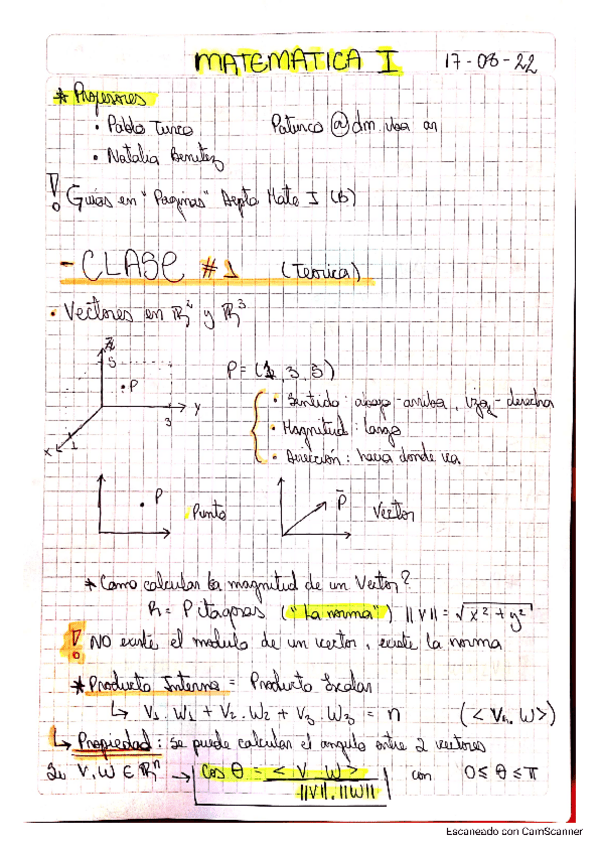 MATEMATICA I 17-08-22
* Profesores
• Pablo Turco Paturco @dm.uba ar
• Natalia Benitez
! Guias en "Paginas" Depto Mate I (B)
- CLASE #1 (Teorica)
• Vectores en ℝ² y ℝ³
z
5
•P
y
3
x
1
P = (1, 3, 5)
• Sentido: abajo-arriba, izq-derecha
• Magnitud: largo
• Dirección: hacia donde va
• P Punto
P Vector
* Como calcular la magnitud de un Vector?
R = Pitagoras ("La norma") ||V|| = √x² + y²
! NO existe el modulo de un vector, existe la norma
* Producto Interno = Producto Escalar
↳ V₁ . W₁ + V₂ . W₂ + V₃ . W₃ = n (< V, W >)
↳ Propiedad: se puede calcular el angulo entre 2 vectores
V, W ∈ ℝⁿ → Cos θ = < V, W > / ||V|| . ||W|| con 0 ≤ θ ≤ π
Escaneado con CamScanner